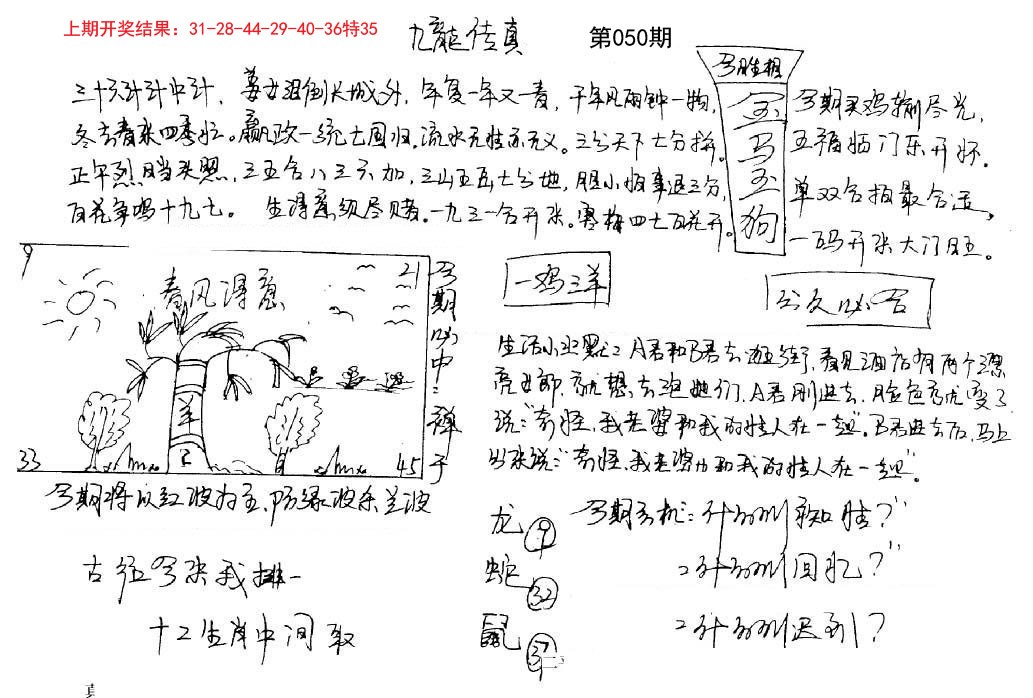 上期开奖结果：31-28-44-29-40-36特35
九龍传真 第050期
三十六计计中计，姜女泪倒长城外，年复一年又一春，千年风雨钟一物，
冬去春来四季忙。嬴政一统七国归。流水无性亦无义。三分天下七分拼。
正午烈日当头照，三五合八三六加，三山五岳七分地，胆小怕事退三分，
百花争鸣十九七。 生得高级尽赌。一九三一合开张。寒梅四七百花开。
今期买鸡输尽光，
五福临门乐开怀。
单双合拍最合适，
一码开张大门旺。
马
狗
9
21
春风得意
羊
33
45
今期必中：禅子
一鸡三羊
生活小幽默：A君和B君去逛街，看见酒店有两个漂
亮女郎，就想去泡她们，A君刚进去，脸色就变了
说：“奇怪，我老婆和我的情人在一起”。B君进去后，马上
出来说：“奇怪，我老婆也和我的情人在一起”。
今期将以红波为主，防绿波杀兰波
龙 9
蛇 32
鼠 37
今期玄机：什么叫
：什么叫回忆？”
：什么叫迟到？
古往今来我排一
十二生肖中间取
真